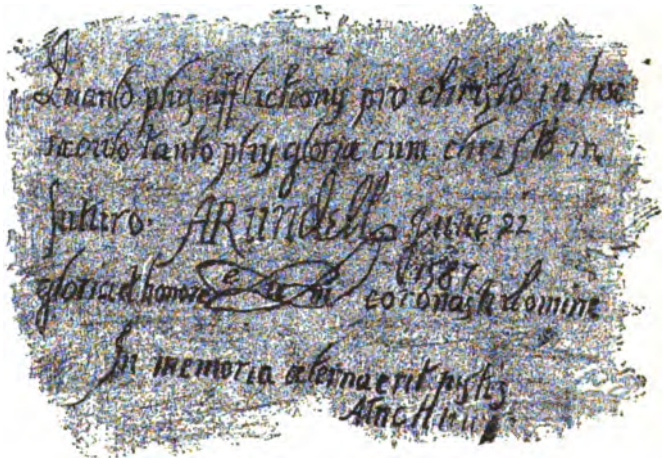 Quanto plus afflictionis pro christo in hoc
saeculo tanto plus gloriae cum christo in
futuro. ARundell June 22
1587
gloria et honore eum coronasti domine
In memoria aeterna erit justus